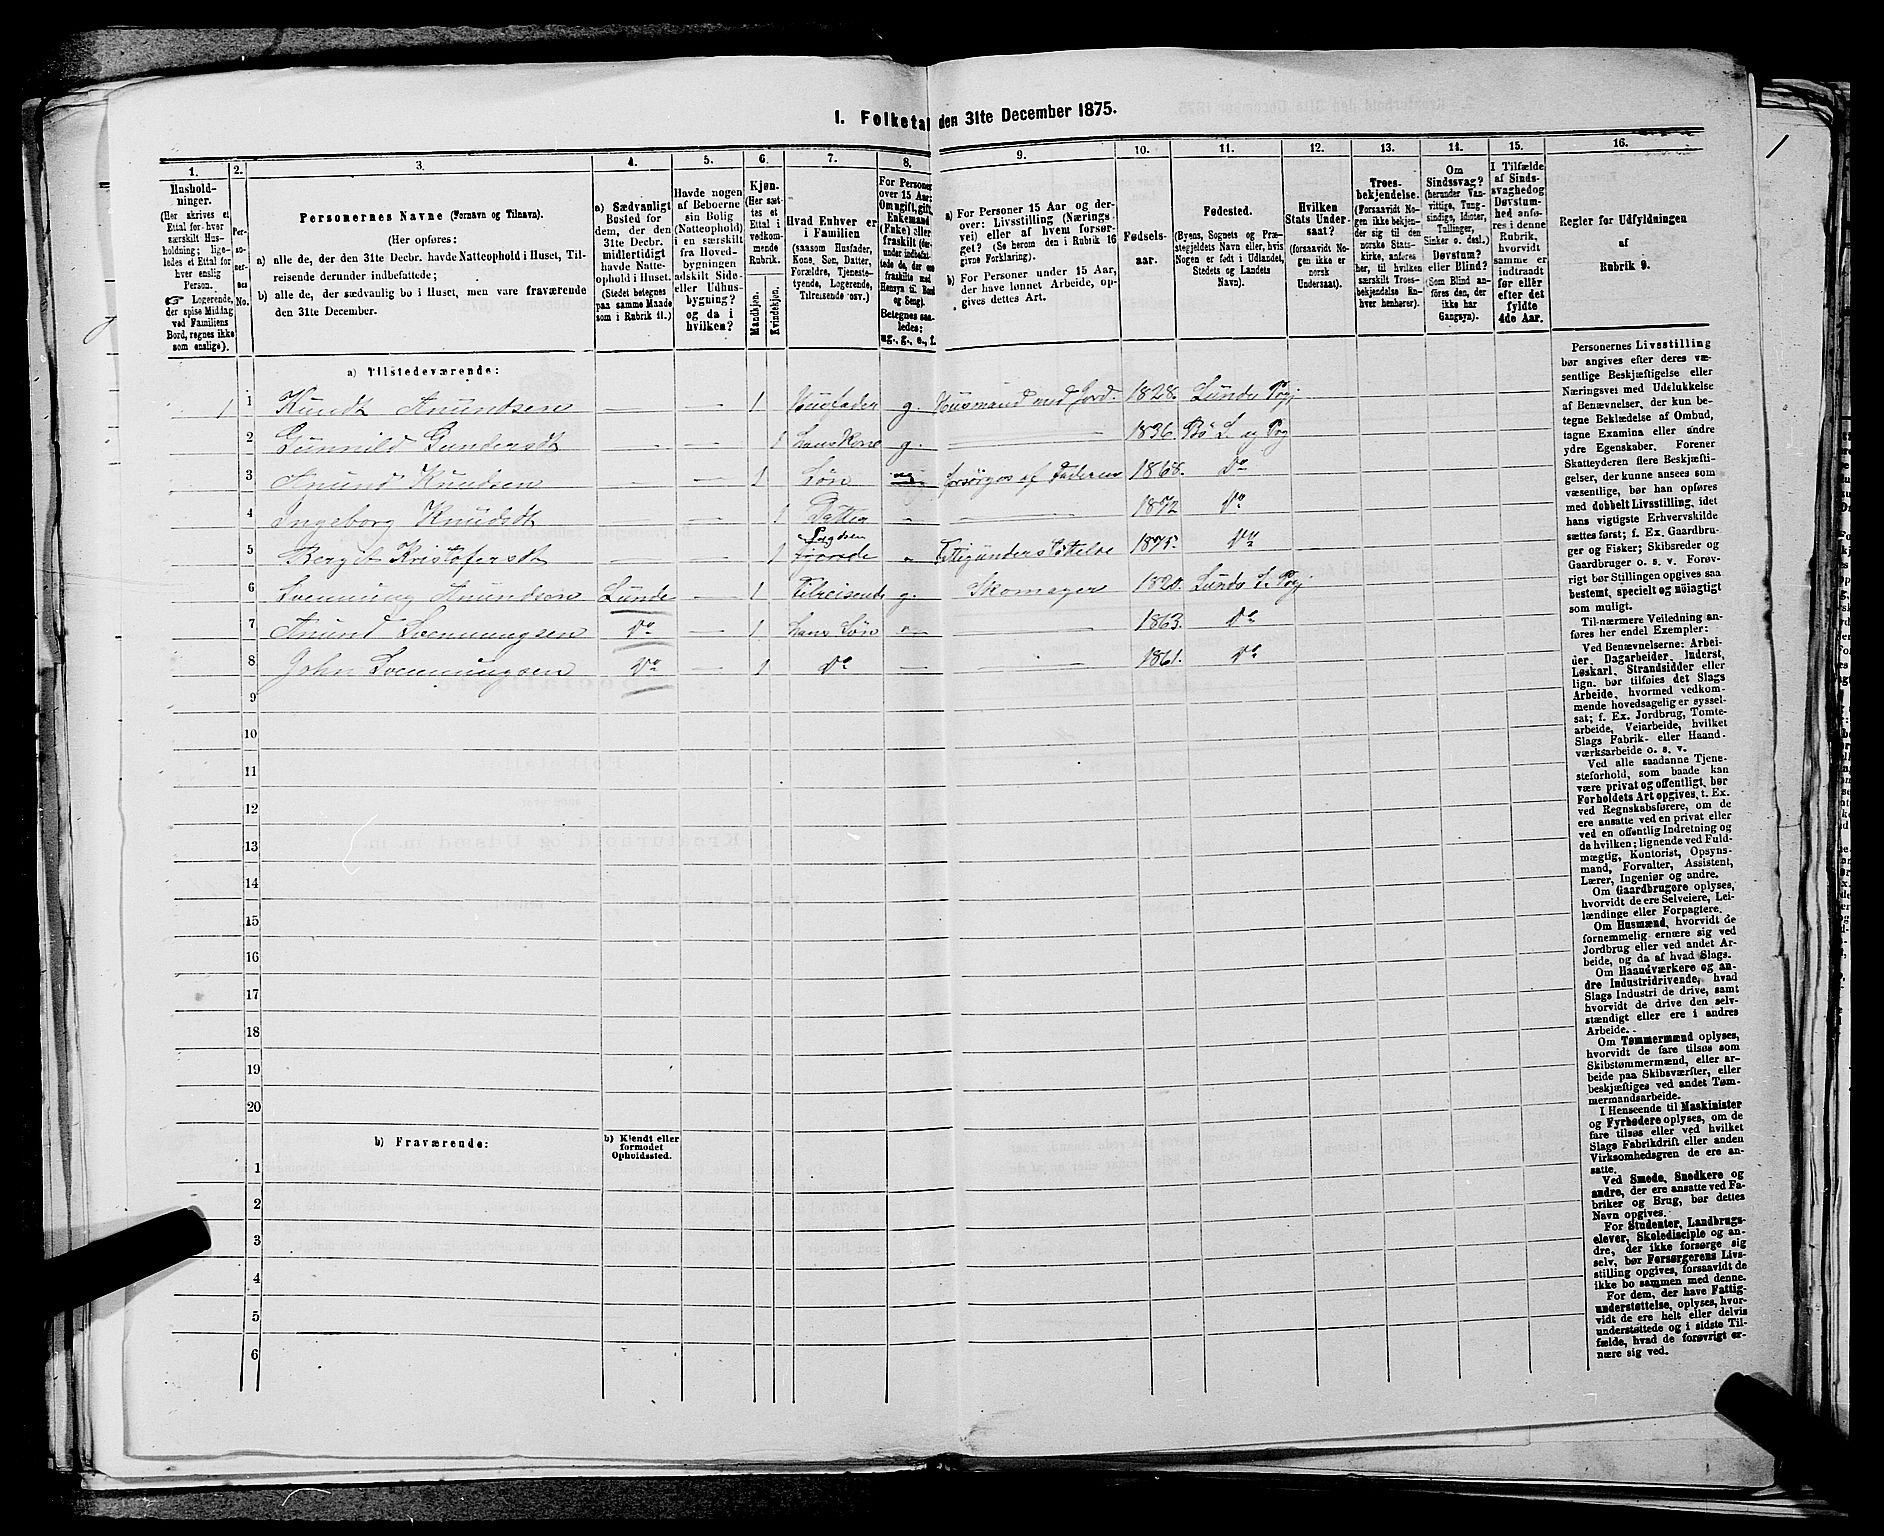 I. Folketal den 31te December 1875.
1
1.
2.
3.
4.
5.
6.
7.
8.
9.
10.
11.
12.
13.
14.
15.
16.
Hushold-
ninger.
(Her skrives et
Ettal for hver
særskilt Hus-
holdning; lige-
ledes et Ettal for
hver enslig
Person.
☞ Logerende,
der spise Middag
ved Familiens
Bord, regnes ikke
som enslige).
Per-
so-
ner-
nes
No.
Personernes Navne (Fornavn og Tilnavn).
(Her opføres:
a) alle de, der den 31te Decbr. havde Natteophold i Huset, Til-
reisende derunder indbefattede;
b) alle de, der sædvanlig bo i Huset, men vare fraværende
den 31te December.
a) Sædvanligt
Bosted for
dem, der den
31te Decbr.
midlertidigt
havde Natte-
ophold i Huset.
(Stedet betegnes
paa samme Maade
som i Rubrik 11.)
Havde nogen
af Beboerne
sin Bolig
(Natteophold)
i en særskilt
fra Hoved-
bygningen
adskilt Side-
eller Udhus-
bygning?
og da i
hvilken?
Kjøn.
(Her sæt-
tes et
Ettal i
vedkom-
mende
Rubrik.
Mandkjøn.
Kvindekjøn.
Hvad Enhver er
i Familien
(saasom Husfader,
Kone, Søn, Datter,
Forældre, Tjeneste-
tyende, Logerende,
Tilreisende osv.)
For Personer
over 15 Aar:
Om ugift, gift,
Enkemand
(Enke) eller
fraskilt (der-
under indbefat-
tede de, der ere
fraskilte med
Hensyn til Bord
og Seng).
Betegnes saa-
ledes:
ug., g., e., f.
a) For Personer 15 Aar og der-
over: Livsstilling (Nærings-
vei) eller af hvem forsør-
get? (Se herom den i Rubrik 16
givne Forklaring).
b) For Personer under 15 Aar,
der have lønnet Arbeide, op-
gives dettes Art.
Fødsels-
aar.
Fødested.
(Byens, Sognets og Præ-
stegjeldets Navn eller, hvis
Nogen er født i Udlandet,
Stedets og Landets
Navn).
Hvilken
Stats Under-
saat?
(forsaavidt No-
gen ikke er
norsk
Undersaat).
Troes-
bekjendelse.
(Forsaavidt No-
gen ikke bekjen-
der sig til den
norske Stats-
kirke, anføres
her, til hvilken
særskilt Troes-
bekjendelse En-
hver henhører).
Om
Sindssvag?
(herunder Van-
vittige, Tung-
sindige, Idioter,
Tullinger,
Sinker o. desl.)
Døvstum?
eller Blind?
(Som Blind an-
føres den, der
ikke har
Gangsyn).
I Tilfælde
af Sinds-
svaghed og
Døvstum-
hed anfø-
res i denne
Rubrik,
hvorvidt
samme er
indtraadt
før eller
efter det
fyldte
4de Aar.
Regler for Udfyldningen
af
Rubrik 9.
a) Tilstedeværende:
1 1 Knudt Anundsen — — 1 Husfader g. Husmand med Jord. 1828. Lunde Pgj
2 Gunnild Gundersdt — — 1 hans Kone g. — 1836. Bø S. og Pgj
3 Anund Knudsen — — 1 Søn forsørges af Faderen 1868. Do
4 Ingeborg Knudsdt — 1 Datter — 1872 Do
5 Bergit Kristofersdt — — 1 Fattigunderstøttelse 1875. Do
6 Svennung Anundsen Lunde — 1 Tilreisende g. Skomager 1820. Lunde S. Pgj
7 Anund Svennungsen Do — 1 hans Søn — 1863. Do
8 John Svennungsen Do — 1 Do — — 1861. Do
9
10
11
12
13
14
15
16
17
18
19
20
b) Fraværende:
b) Kjendt eller
formodet
Opholdssted.
1
2
3
4
5
6
Personernes Livsstilling
bør angives efter deres væ-
sentlige Beskjæftigelse eller
Næringsvei med Udelukkelse
af Benævnelser, der kun be-
tegne Beklædelse af Ombud,
tagne Examina eller andre
ydre Egenskaber. Forener
Skatteyderen flere Beskjæfti-
gelser, der kunne ansees som
væsentlige, bør han opføres
med dobbelt Livsstilling, idet
hans vigtigste Erhvervskilde
sættes først; f. Ex. Gaardbru-
ger og Fisker; Skibsreder og
Gaardbruger o. s. v. Forøv-
rigt bør Stillingen opgives saa
bestemt, specielt og nøiagtigt
som muligt.
Til nærmere Veiledning an-
føres her endel Exempler:
Ved Benævnelserne: Arbei-
der, Dagarbeider, Inderst,
Løskarl, Strandsidder eller
lign. bør tilføies det Slags
Arbeide, hvormed vedkom-
mende hovedsagelig er syssel-
sat; f. Ex. Jordbrug, Tomte-
arbeide, Veiarbeide, hvilket
Slags Fabrik- eller Haand-
værksarbeide o. s. v.
Ved alle saadanne Tjene-
steforhold, som baade kan
være privat og offentligt, bør
Forholdets Art opgives, t. Ex.
ved Regnskabsførere, om de
ere ansatte ved en privat eller
ved en offentlig Indretning og
da hvilken; lignende ved Fuld-
mægtig, Kontorist, Opsyns-
mand, Forvalter, Assistent,
Lærer, Ingeniør og andre.
Om Gaardbrugere oplyses,
hvorvidt de ere Selveiere, Lei-
lændinge eller Forpagtere.
Om Husmænd, hvorvidt de
fornemmelig ernære sig ved
Jordbrug eller ved andet Ar-
beide, og da af hvad Slags.
Om Haandværkere og an-
dre Industridrivende, hvad
Slags Industri de drive, samt
hvorvidt de drive den selv-
stændigt eller ere i andres
Arbeide.
Om Tømmermænd oplyses,
hvorvidt de fare tilsøs som
Skibstømmermænd, eller ar-
beide paa Skibsværfter, eller
beskjæftiges ved andet Tøm-
mermandsarbeide.
I Henseende til Maskinister
og Fyrbødere oplyses, om de
fare tilsøs eller ved hvilket
Slags Fabrikdrift eller anden
Virksomhedsgren de ere an-
satte.
Ved Smede, Snedkere og
andre, der ere ansatte ved Fa-
briker og Brug, bør dettes
Navn opgives.
For Studenter, Landbrugs-
elever, Skoledisciple og an-
dre, der ikke forsørge sig
selv, bør Forsørgerens Livs-
stilling opgives, forsaavidt de
ikke bo sammen med denne.
For dem, der have Fattig-
understøttelse, oplyses, hvor-
vidt de ere helt eller delvis
understøttede og i sidste Til-
fælde, hvad de forøvrigt er-
nære sig ved.